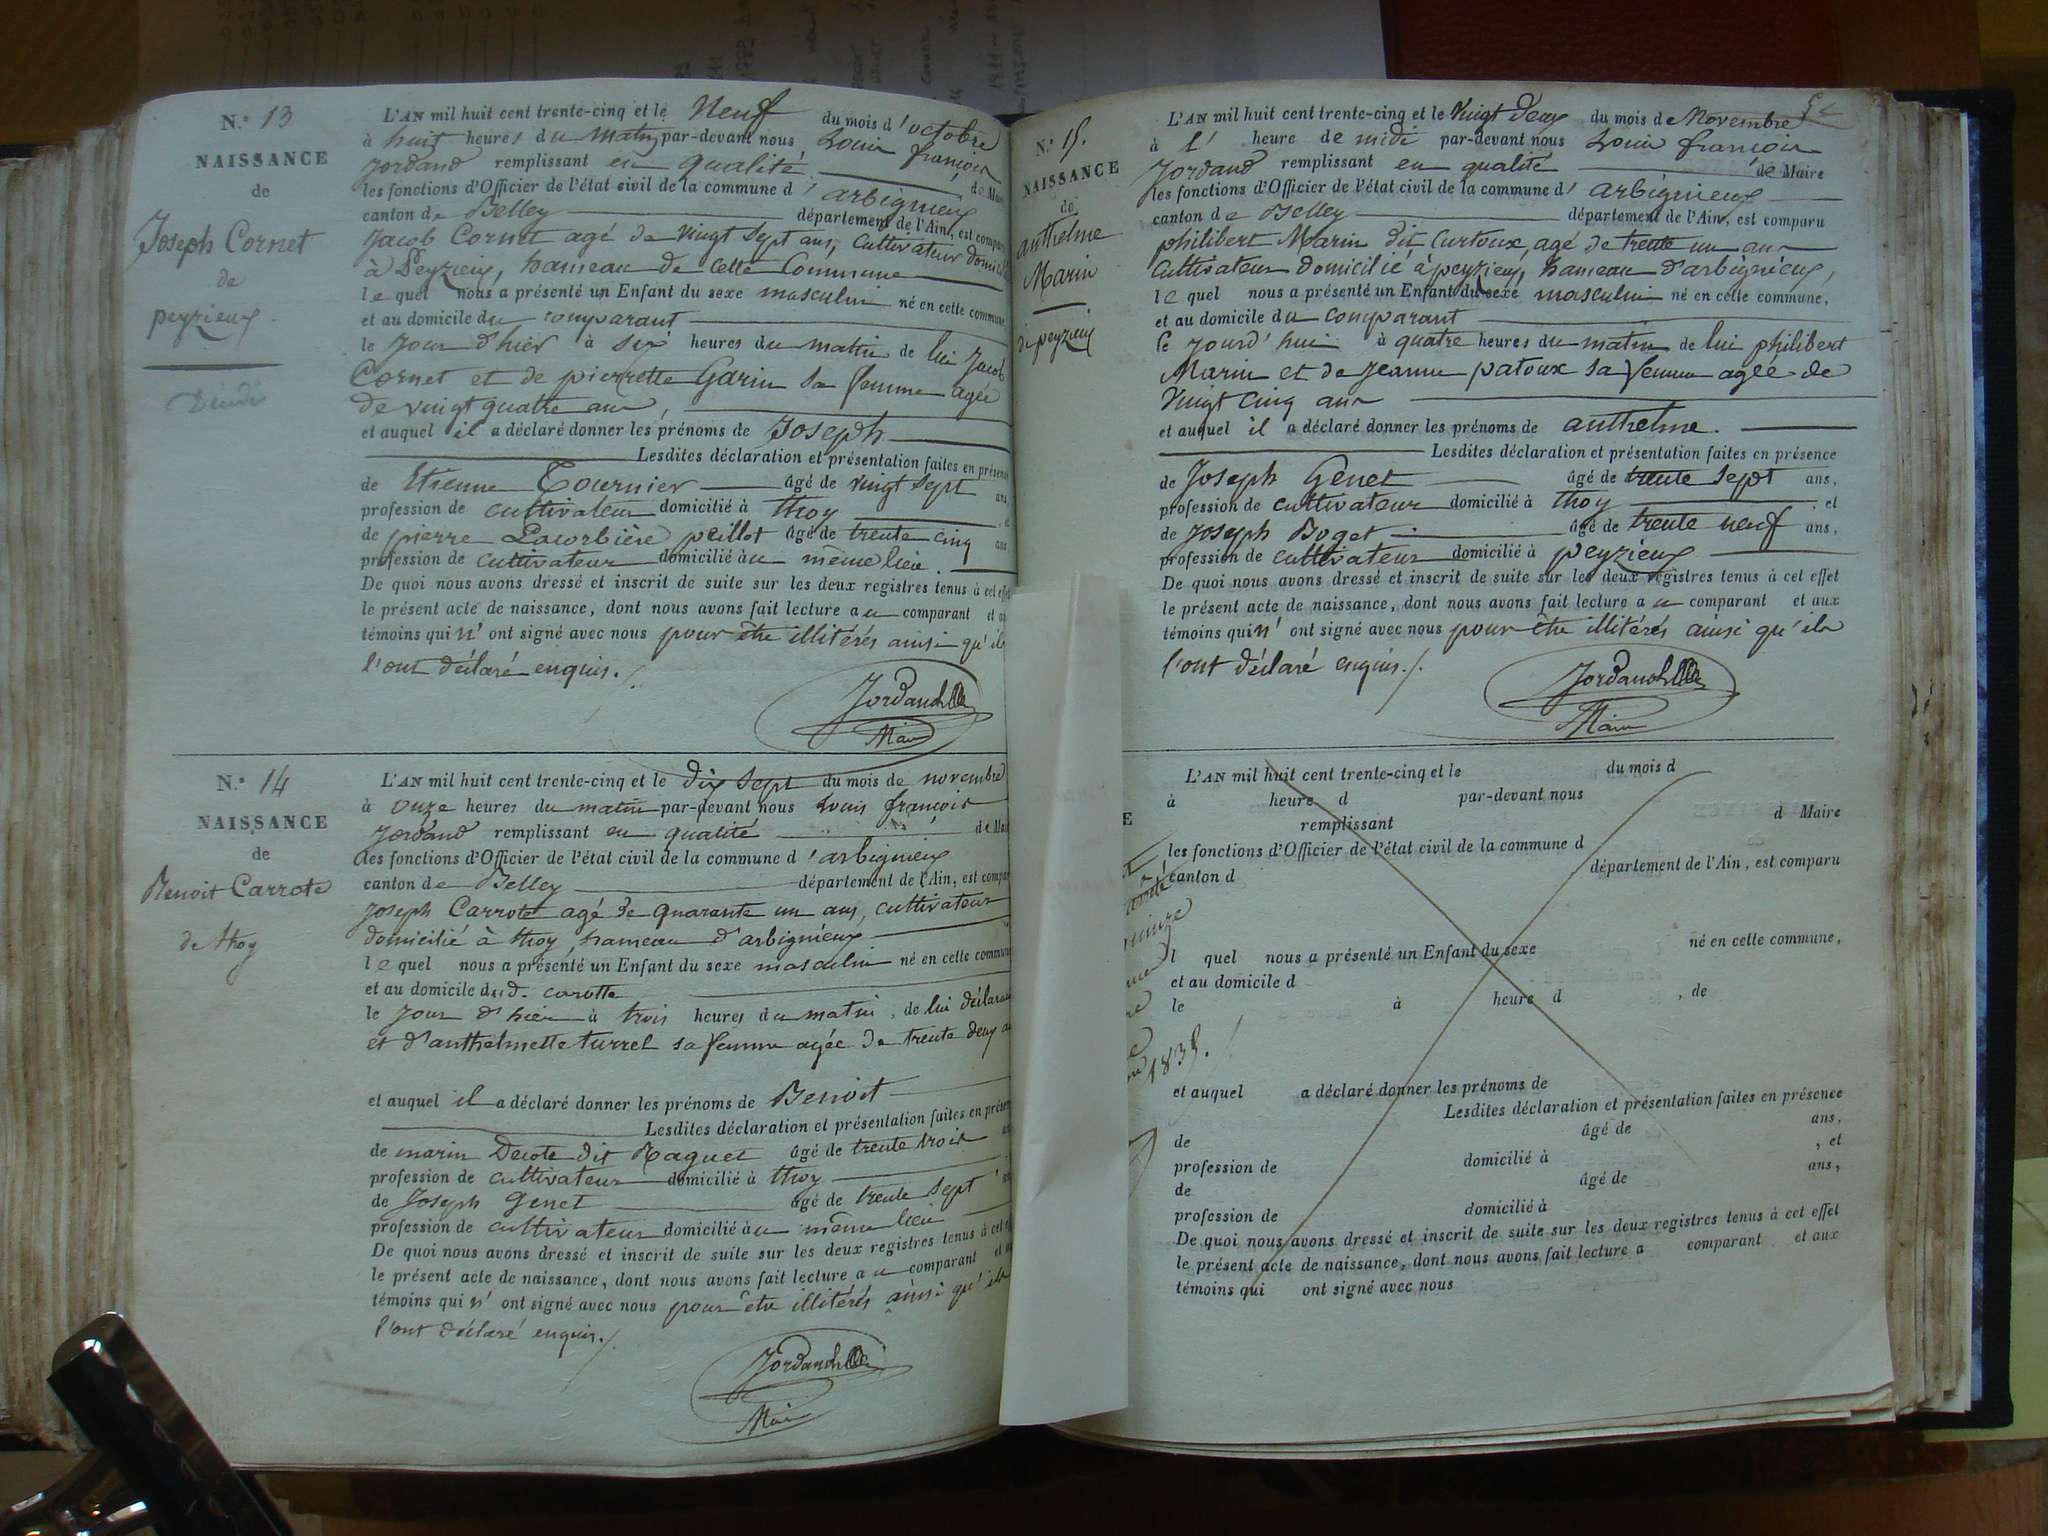 N.º 13
NAISSANCE
de
Joseph Cornet
de
peyzieux
Décédé
L'AN mil huit cent trente-cinq et le Neuf du mois d'octobre
à huit heures du matin par-devant nous, Louis françois
Jordand remplissant en qualité de Maire
les fonctions d'Officier de l'état civil de la commune d'arbignieux
canton de Belley département de l'Ain, est comparu
Jacob Cornet agé de vingt sept ans, cultivateur domicilié
à Peyzieux, hameau de cette Commune
le quel nous a présenté un Enfant du sexe masculin né en cette commune
et au domicile du comparant
le Jour d'hier à six heures du matin de lui Jacob
Cornet et de pierrette Garin sa femme agée
de vingt quatre ans,
et auquel il a déclaré donner les prénoms de Joseph
Lesdites déclaration et présentation faites en présence
de Etienne Tournier âgé de vingt sept ans,
profession de cultivateur domicilié à thoy et
de pierre Lacorbière peillot âgé de trente cinq ans
profession de cultivateur domicilié au même lieu.
De quoi nous avons dressé et inscrit de suite sur les deux registres tenus à cet effet
le présent acte de naissance, dont nous avons fait lecture au comparant et aux
témoins qui n'ont signé avec nous pour être illitérés ainsi qu'ils
l'ont déclaré enquis./.
Jordand
Maire
N.º 14
NAISSANCE
de
Benoit Carrote
de thoy
L'AN mil huit cent trente-cinq et le dix sept du mois de novembre
à onze heures du matin par-devant nous Louis françois
Jordand remplissant en qualité de Maire
les fonctions d'Officier de l'état civil de la commune d'arbignieux
canton de Belley département de l'Ain, est comparu
Joseph Carrote agé de quarante un ans, cultivateur
domicilié à thoy, hameau d'arbignieux
le quel nous a présenté un Enfant du sexe masculin né en cette commune
et au domicile dud. carotte
le Jour d'hier à trois heures du matin, de lui déclarant
et d'anthelmette turrel sa femme agée de trente deux ans
et auquel il a déclaré donner les prénoms de Benoit
Lesdites déclaration et présentation faites en présence
de marin Decote dit Raquet âgé de trente trois ans
profession de cultivateur domicilié à thoy
de Joseph Genet âgé de trente sept ans
profession de cultivateur domicilié au même lieu
De quoi nous avons dressé et inscrit de suite sur les deux registres tenus à cet effet
le présent acte de naissance, dont nous avons fait lecture au comparant et aux
témoins qui n'ont signé avec nous pour être illitérés ainsi qu'ils
l'ont déclaré enquis./
Jordand
Maire
N.º 15.
NAISSANCE
de
anthelme
Marin
de peyzieux
L'AN mil huit cent trente-cinq et le Vingt deux du mois de Novembre
à l'heure de midi par-devant nous Louis françois
Jordand remplissant en qualité de Maire
les fonctions d'Officier de l'état civil de la commune d'arbignieux
canton de Belley département de l'Ain, est comparu
philibert Marin dit Curtoux, agé de trente un ans
cultivateur domicilié à peyzieux, hameau d'arbignieux,
le quel nous a présenté un Enfant du sexe masculin né en cette commune,
et au domicile du comparant
le jourd'hui à quatre heures du matin de lui philibert
Marin et de Jeanne patoux sa femme agée de
Vingt cinq ans
et auquel il a déclaré donner les prénoms de anthelme.
Lesdites déclaration et présentation faites en présence
de Joseph Genet âgé de trente sept ans,
profession de cultivateur domicilié à thoy, et
de Joseph Boget âgé de trente neuf ans,
profession de cultivateur domicilié à peyzieux
De quoi nous avons dressé et inscrit de suite sur les deux registres tenus à cet effet
le présent acte de naissance, dont nous avons fait lecture au comparant et aux
témoins qui n'ont signé avec nous pour être illitérés ainsi qu'ils
l'ont déclaré enquis./.
Jordand
Maire
L'AN mil huit cent trente-cinq et le du mois d
à heure d par-devant nous
remplissant d Maire
les fonctions d'Officier de l'état civil de la commune d
canton d département de l'Ain, est comparu
l quel nous a présenté un Enfant du sexe né en cette commune,
et au domicile d
le à heure d , de
1835.
et auquel a déclaré donner les prénoms de
Lesdites déclaration et présentation faites en présence
de âgé de ans,
profession de domicilié à , et
de âgé de ans,
profession de domicilié à
De quoi nous avons dressé et inscrit de suite sur les deux registres tenus à cet effet
le présent acte de naissance, dont nous avons fait lecture a comparant et aux
témoins qui ont signé avec nous